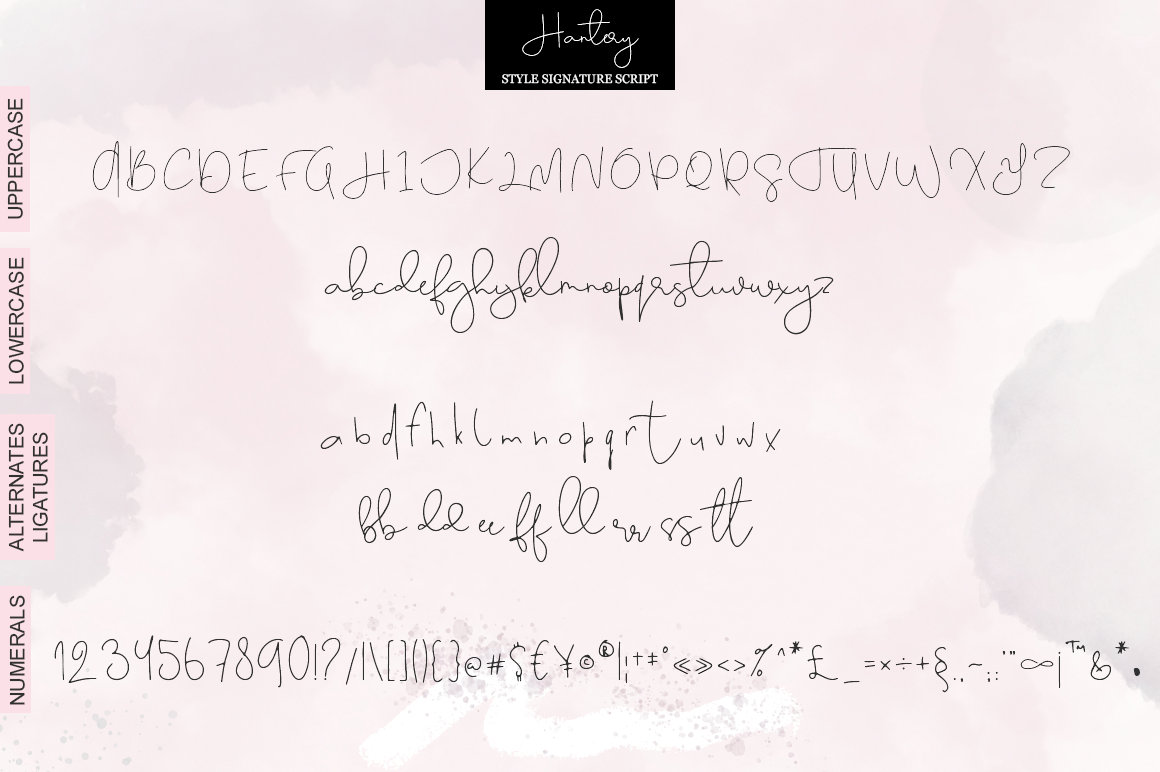 Hantory
STYLE SIGNATURE SCRIPT
UPPERCASE
ABCDEFGHIJKLMNOPQRSTUVWXYZ
LOWERCASE
abcdefghijklmnopqrstuvwxyz
ALTERNATES
LIGATURES
a b d f h k l m n o p q r t u v w x
bb dd ee ff ll rr ss tt
NUMERALS
1234567890!?/|\[](){}@#$€¥©®|¦†‡°«»<>%^*£_=×÷+§.,~;:'"∞¡™&*•